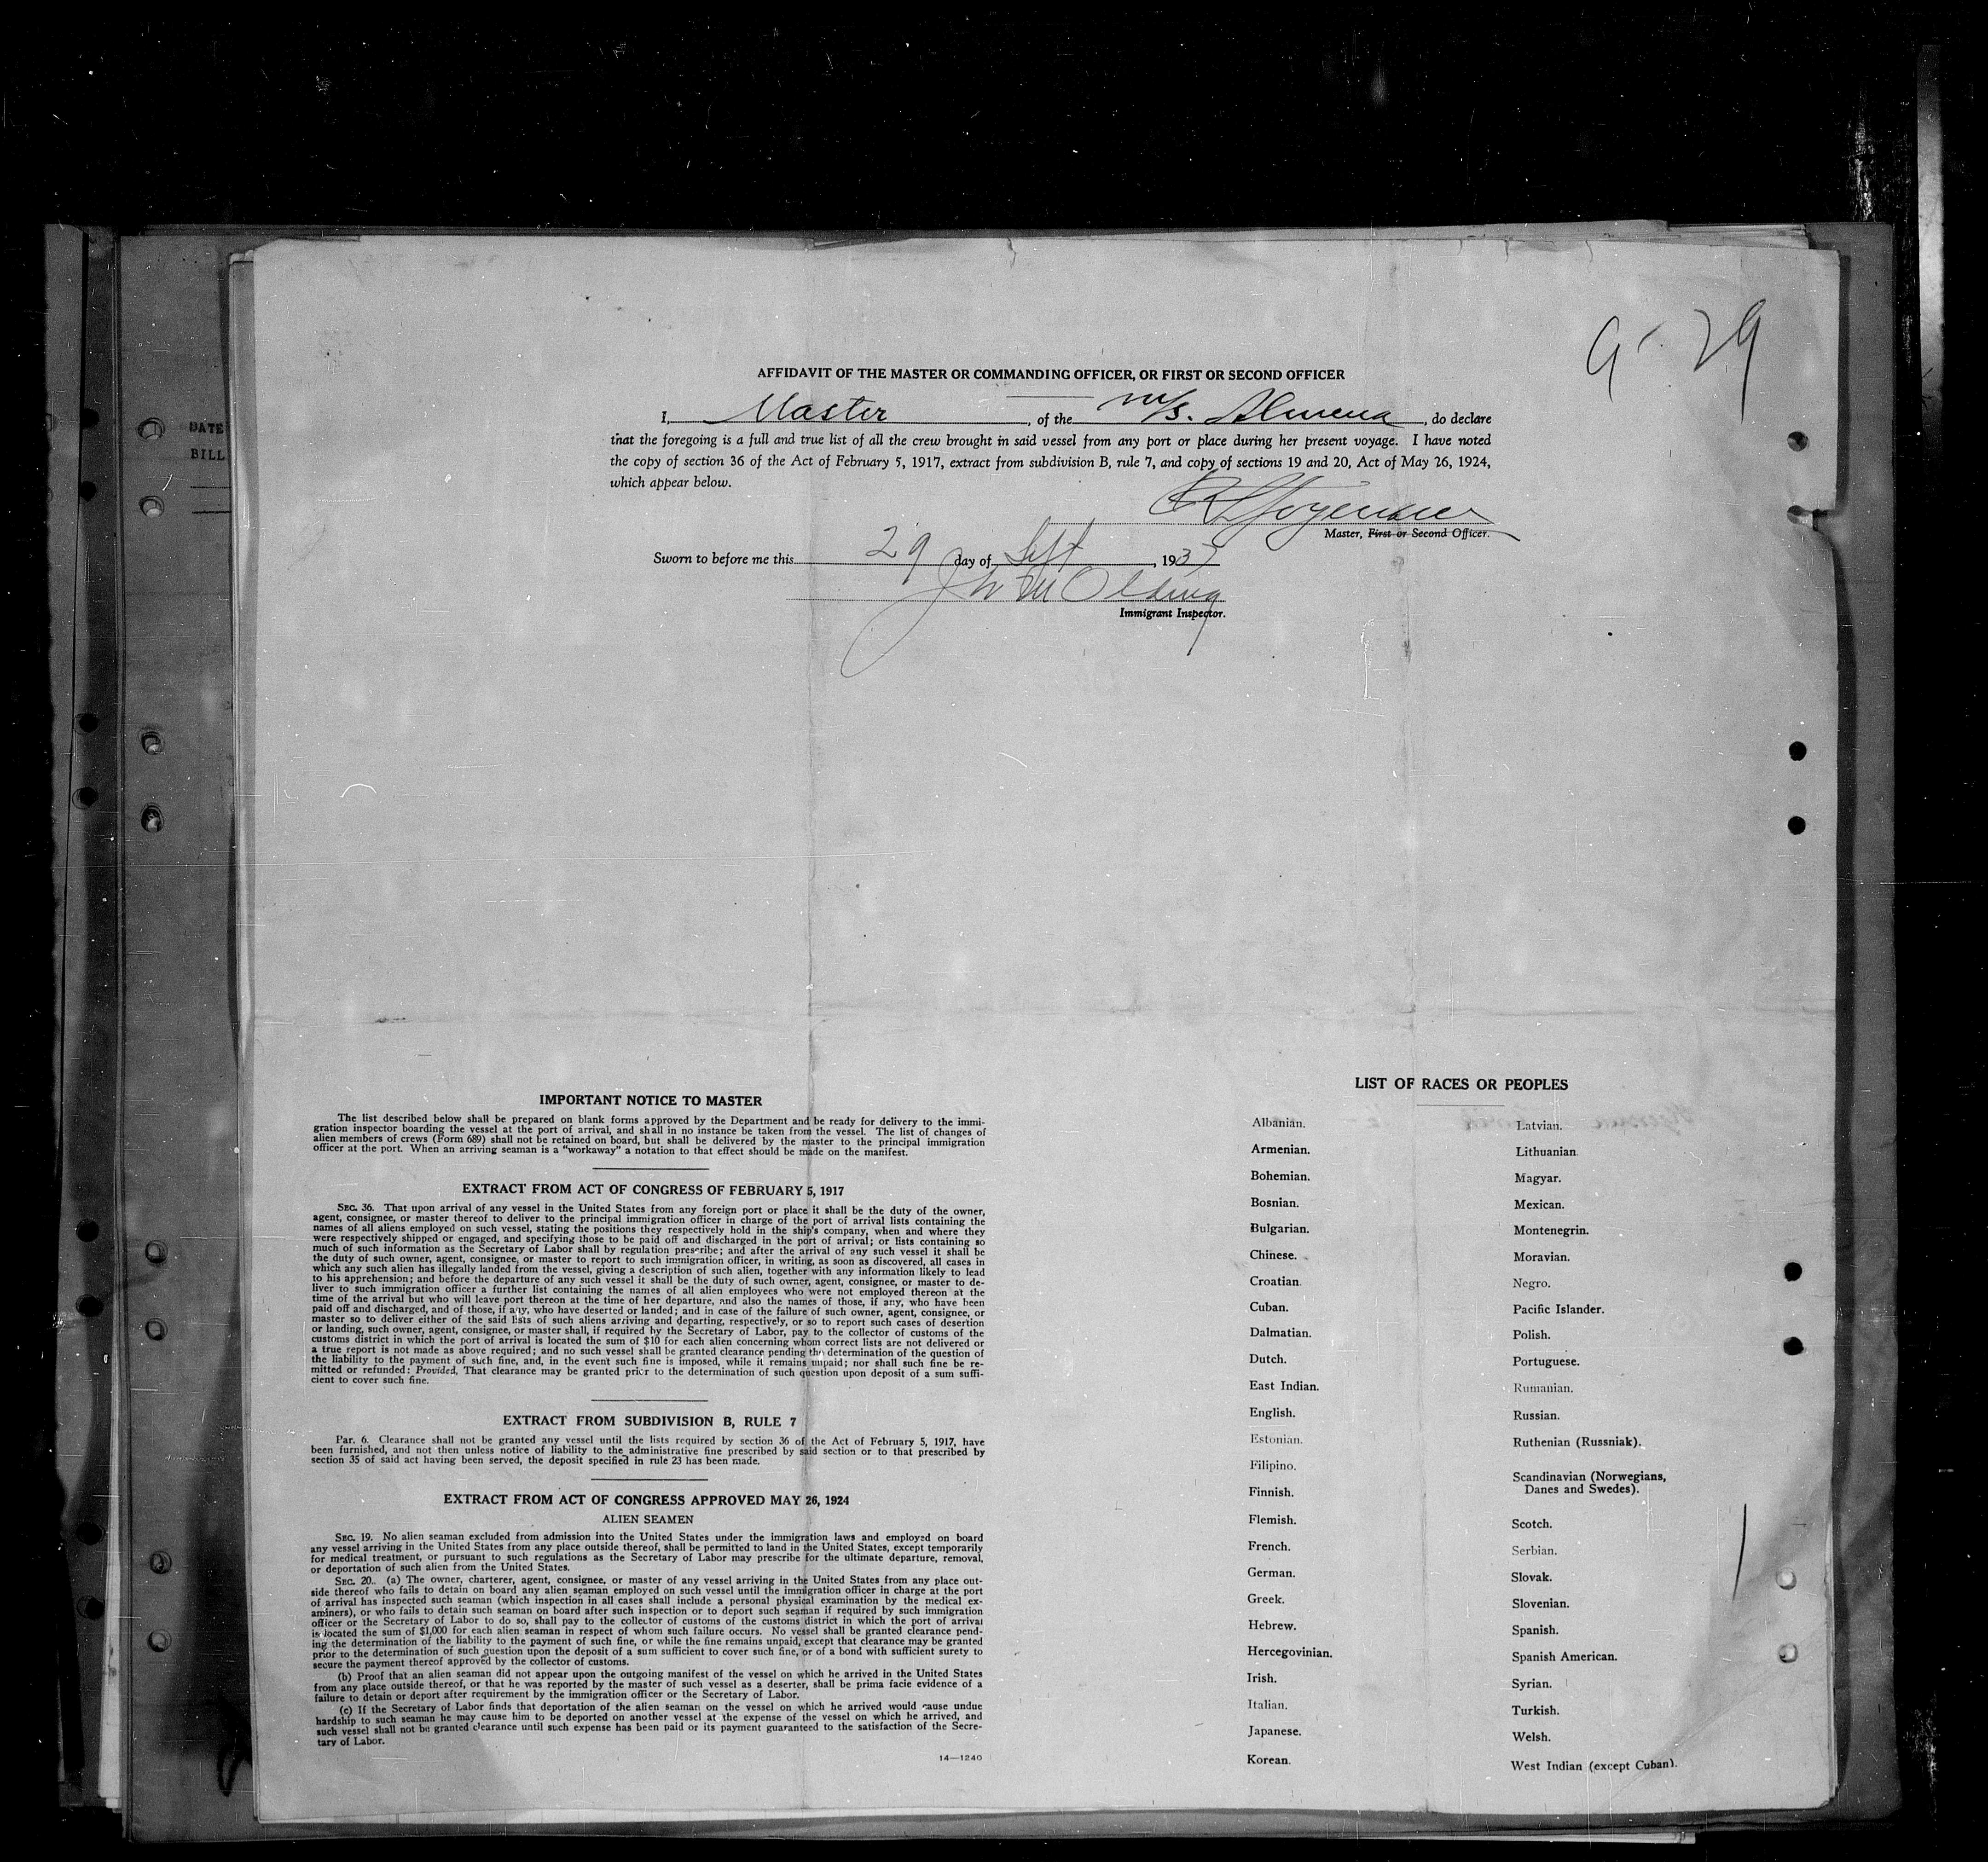 9-29
DATE
BILL
AFFIDAVIT OF THE MASTER OR COMMANDING OFFICER, OR FIRST OR SECOND OFFICER
I, Master, of the m/s. Almena, do declare
that the foregoing is a full and true list of all the crew brought in said vessel from any port or place during her present voyage. I have noted
the copy of section 36 of the Act of February 5, 1917, extract from subdivision B, rule 7, and copy of sections 19 and 20, Act of May 26, 1924,
which appear below.
Master, First or Second Officer.
Sworn to before me this 29 day of Sept, 193
Immigrant Inspector.
IMPORTANT NOTICE TO MASTER
The list described below shall be prepared on blank forms approved by the Department and be ready for delivery to the immi-
gration inspector boarding the vessel at the port of arrival, and shall in no instance be taken from the vessel. The list of changes of
alien members of crews (Form 689) shall not be retained on board, but shall be delivered by the master to the principal immigration
officer at the port. When an arriving seaman is a "workaway" a notation to that effect should be made on the manifest.
EXTRACT FROM ACT OF CONGRESS OF FEBRUARY 5, 1917
SEC. 36. That upon arrival of any vessel in the United States from any foreign port or place it shall be the duty of the owner,
agent, consignee, or master thereof to deliver to the principal immigration officer in charge of the port of arrival lists containing the
names of all aliens employed on such vessel, stating the positions they respectively hold in the ship's company, when and where they
were respectively shipped or engaged, and specifying those to be paid off and discharged in the port of arrival; or lists containing so
much of such information as the Secretary of Labor shall by regulation prescribe; and after the arrival of any such vessel it shall be
the duty of such owner, agent, consignee, or master to report to such immigration officer, in writing, as soon as discovered, all cases in
which any such alien has illegally landed from the vessel, giving a description of such alien, together with any information likely to lead
to his apprehension; and before the departure of any such vessel it shall be the duty of such owner, agent, consignee, or master to de-
liver to such immigration officer a further list containing the names of all alien employees who were not employed thereon at the
time of the arrival but who will leave port thereon at the time of her departure, and also the names of those, if any, who have been
paid off and discharged, and of those, if any, who have deserted or landed; and in case of the failure of such owner, agent, consignee, or
master so to deliver either of the said lists of such aliens arriving and departing, respectively, or so to report such cases of desertion
or landing, such owner, agent, consignee, or master shall, if required by the Secretary of Labor, pay to the collector of customs of the
customs district in which the port of arrival is located the sum of $10 for each alien concerning whom correct lists are not delivered or
a true report is not made as above required; and no such vessel shall be granted clearance pending the determination of the question of
the liability to the payment of such fine, and, in the event such fine is imposed, while it remains unpaid; nor shall such fine be re-
mitted or refunded: Provided, That clearance may be granted prior to the determination of such question upon deposit of a sum suffi-
cient to cover such fine.
EXTRACT FROM SUBDIVISION B, RULE 7
Par. 6. Clearance shall not be granted any vessel until the lists required by section 36 of the Act of February 5, 1917, have
been furnished, and not then unless notice of liability to the administrative fine prescribed by said section or to that prescribed by
section 35 of said act having been served, the deposit specified in rule 23 has been made.
EXTRACT FROM ACT OF CONGRESS APPROVED MAY 26, 1924
ALIEN SEAMEN
SEC. 19. No alien seaman excluded from admission into the United States under the immigration laws and employed on board
any vessel arriving in the United States from any place outside thereof, shall be permitted to land in the United States, except temporarily
for medical treatment, or pursuant to such regulations as the Secretary of Labor may prescribe for the ultimate departure, removal,
or deportation of such alien from the United States.
SEC. 20. (a) The owner, charterer, agent, consignee, or master of any vessel arriving in the United States from any place out-
side thereof who fails to detain on board any alien seaman employed on such vessel until the immigration officer in charge at the port
of arrival has inspected such seaman (which inspection in all cases shall include a personal physical examination by the medical ex-
aminers), or who fails to detain such seaman on board after such inspection or to deport such seaman if required by such immigration
officer or the Secretary of Labor to do so, shall pay to the collector of customs of the customs district in which the port of arrival
is located the sum of $1,000 for each alien seaman in respect of whom such failure occurs. No vessel shall be granted clearance pend-
ing the determination of the liability to the payment of such fine, or while the fine remains unpaid, except that clearance may be granted
prior to the determination of such question upon the deposit of a sum sufficient to cover such fine, or of a bond with sufficient surety to
secure the payment thereof approved by the collector of customs.
(b) Proof that an alien seaman did not appear upon the outgoing manifest of the vessel on which he arrived in the United States
from any place outside thereof, or that he was reported by the master of such vessel as a deserter, shall be prima facie evidence of a
failure to detain or deport after requirement by the immigration officer or the Secretary of Labor.
(c) If the Secretary of Labor finds that deportation of the alien seaman on the vessel on which he arrived would cause undue
hardship to such seaman he may cause him to be deported on another vessel at the expense of the vessel on which he arrived, and
such vessel shall not be granted clearance until such expense has been paid or its payment guaranteed to the satisfaction of the Secre-
tary of Labor.
14—1240
LIST OF RACES OR PEOPLES
Albanian.
Armenian.
Bohemian.
Bosnian.
Bulgarian.
Chinese.
Croatian.
Cuban.
Dalmatian.
Dutch.
East Indian.
English.
Estonian.
Filipino.
Finnish.
Flemish.
French.
German.
Greek.
Hebrew.
Hercegovinian.
Irish.
Italian.
Japanese.
Korean.
Latvian.
Lithuanian
Magyar.
Mexican.
Montenegrin.
Moravian.
Negro.
Pacific Islander.
Polish.
Portuguese.
Rumanian.
Russian.
Ruthenian (Russniak).
Scandinavian (Norwegians,
Danes and Swedes).
Scotch.
Serbian.
Slovak.
Slovenian.
Spanish.
Spanish American.
Syrian.
Turkish.
Welsh.
West Indian (except Cuban).